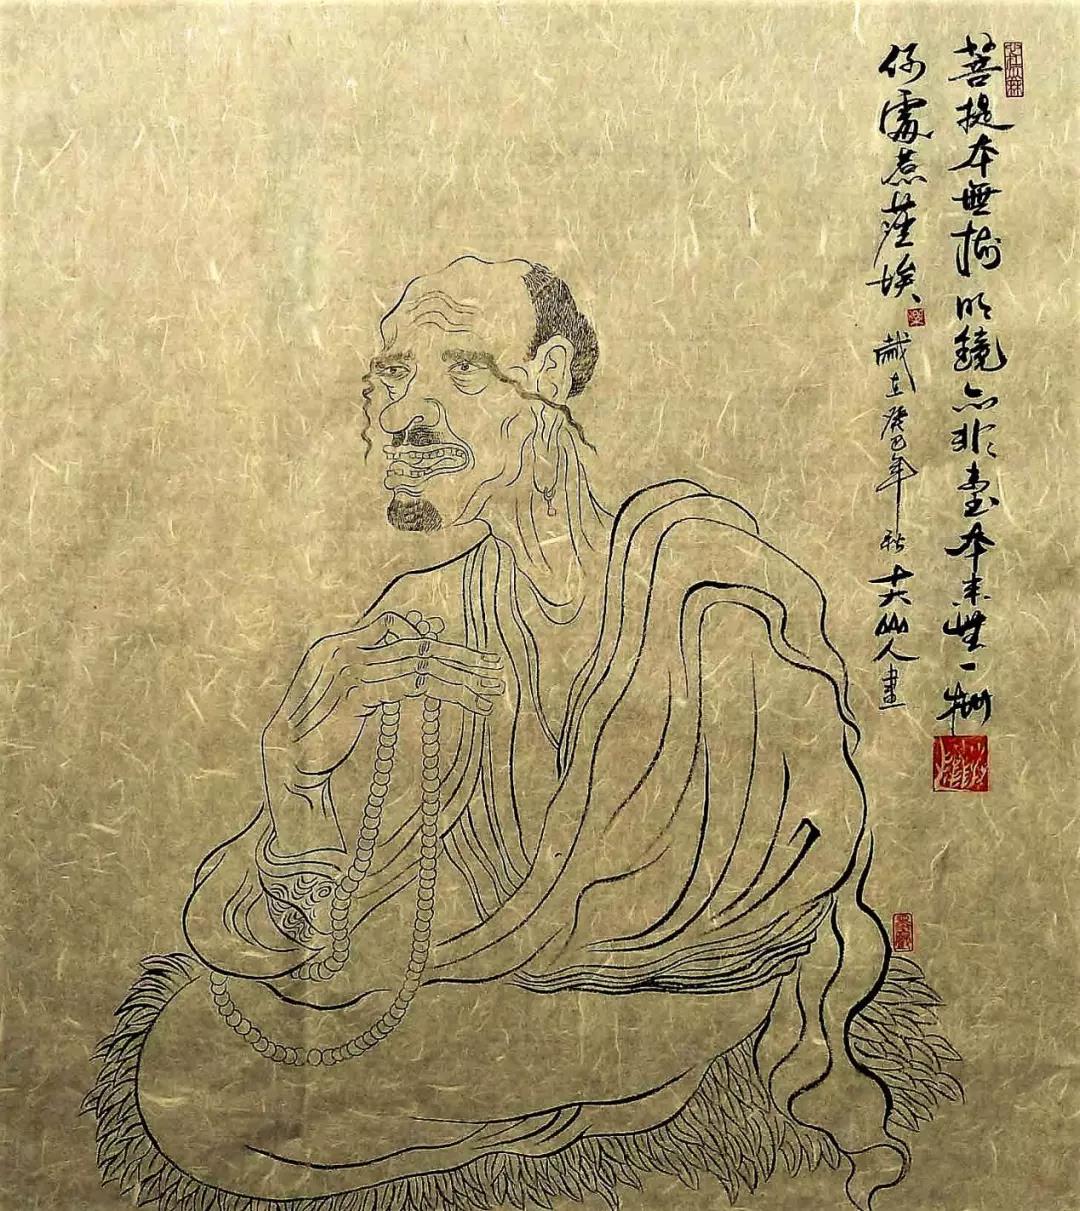 菩提本無樹明鏡亦非臺本来無一物
何處惹塵埃
歲在癸巳年秋仙人畫